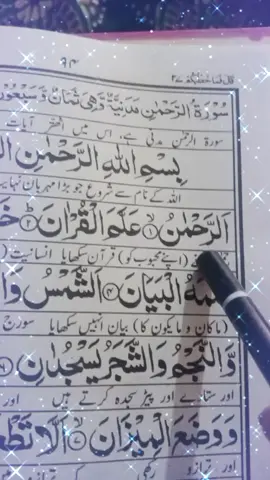 قال فما خطبكم ٢٧
سُوْرَةُ الرَّحْمٰنِ مَدَنِيَّةٌ وَّهِيَ ثَمَانٌ وَّسَبْعُوْنَ
سورۃ الرحمٰن مدنی ہے، اس میں اٹھتر آیات
بِسْمِ اللهِ الرَّحْمٰنِ
اللہ کے نام سے شروع جو بڑا مہربان نہایت
اَلرَّحْمٰنُ ۝١ عَلَّمَ الْقُرْاٰنَ ۝٢
(اپنے محبوب کو) قرآن سکھایا انسانیت
الْبَيَانَ ۝٤ اَلشَّمْسُ
(ماکان و مایکون کا) بیان انہیں سکھایا سورج
وَّالنَّجْمُ وَالشَّجَرُ يَسْجُدَانِ ۝٦
اور ستارے اور پیڑ سجدہ کرتے ہیں اور
وَوَضَعَ الْمِيْزَانَ ۝٧ اَلَّا
اور ترازو رکھی